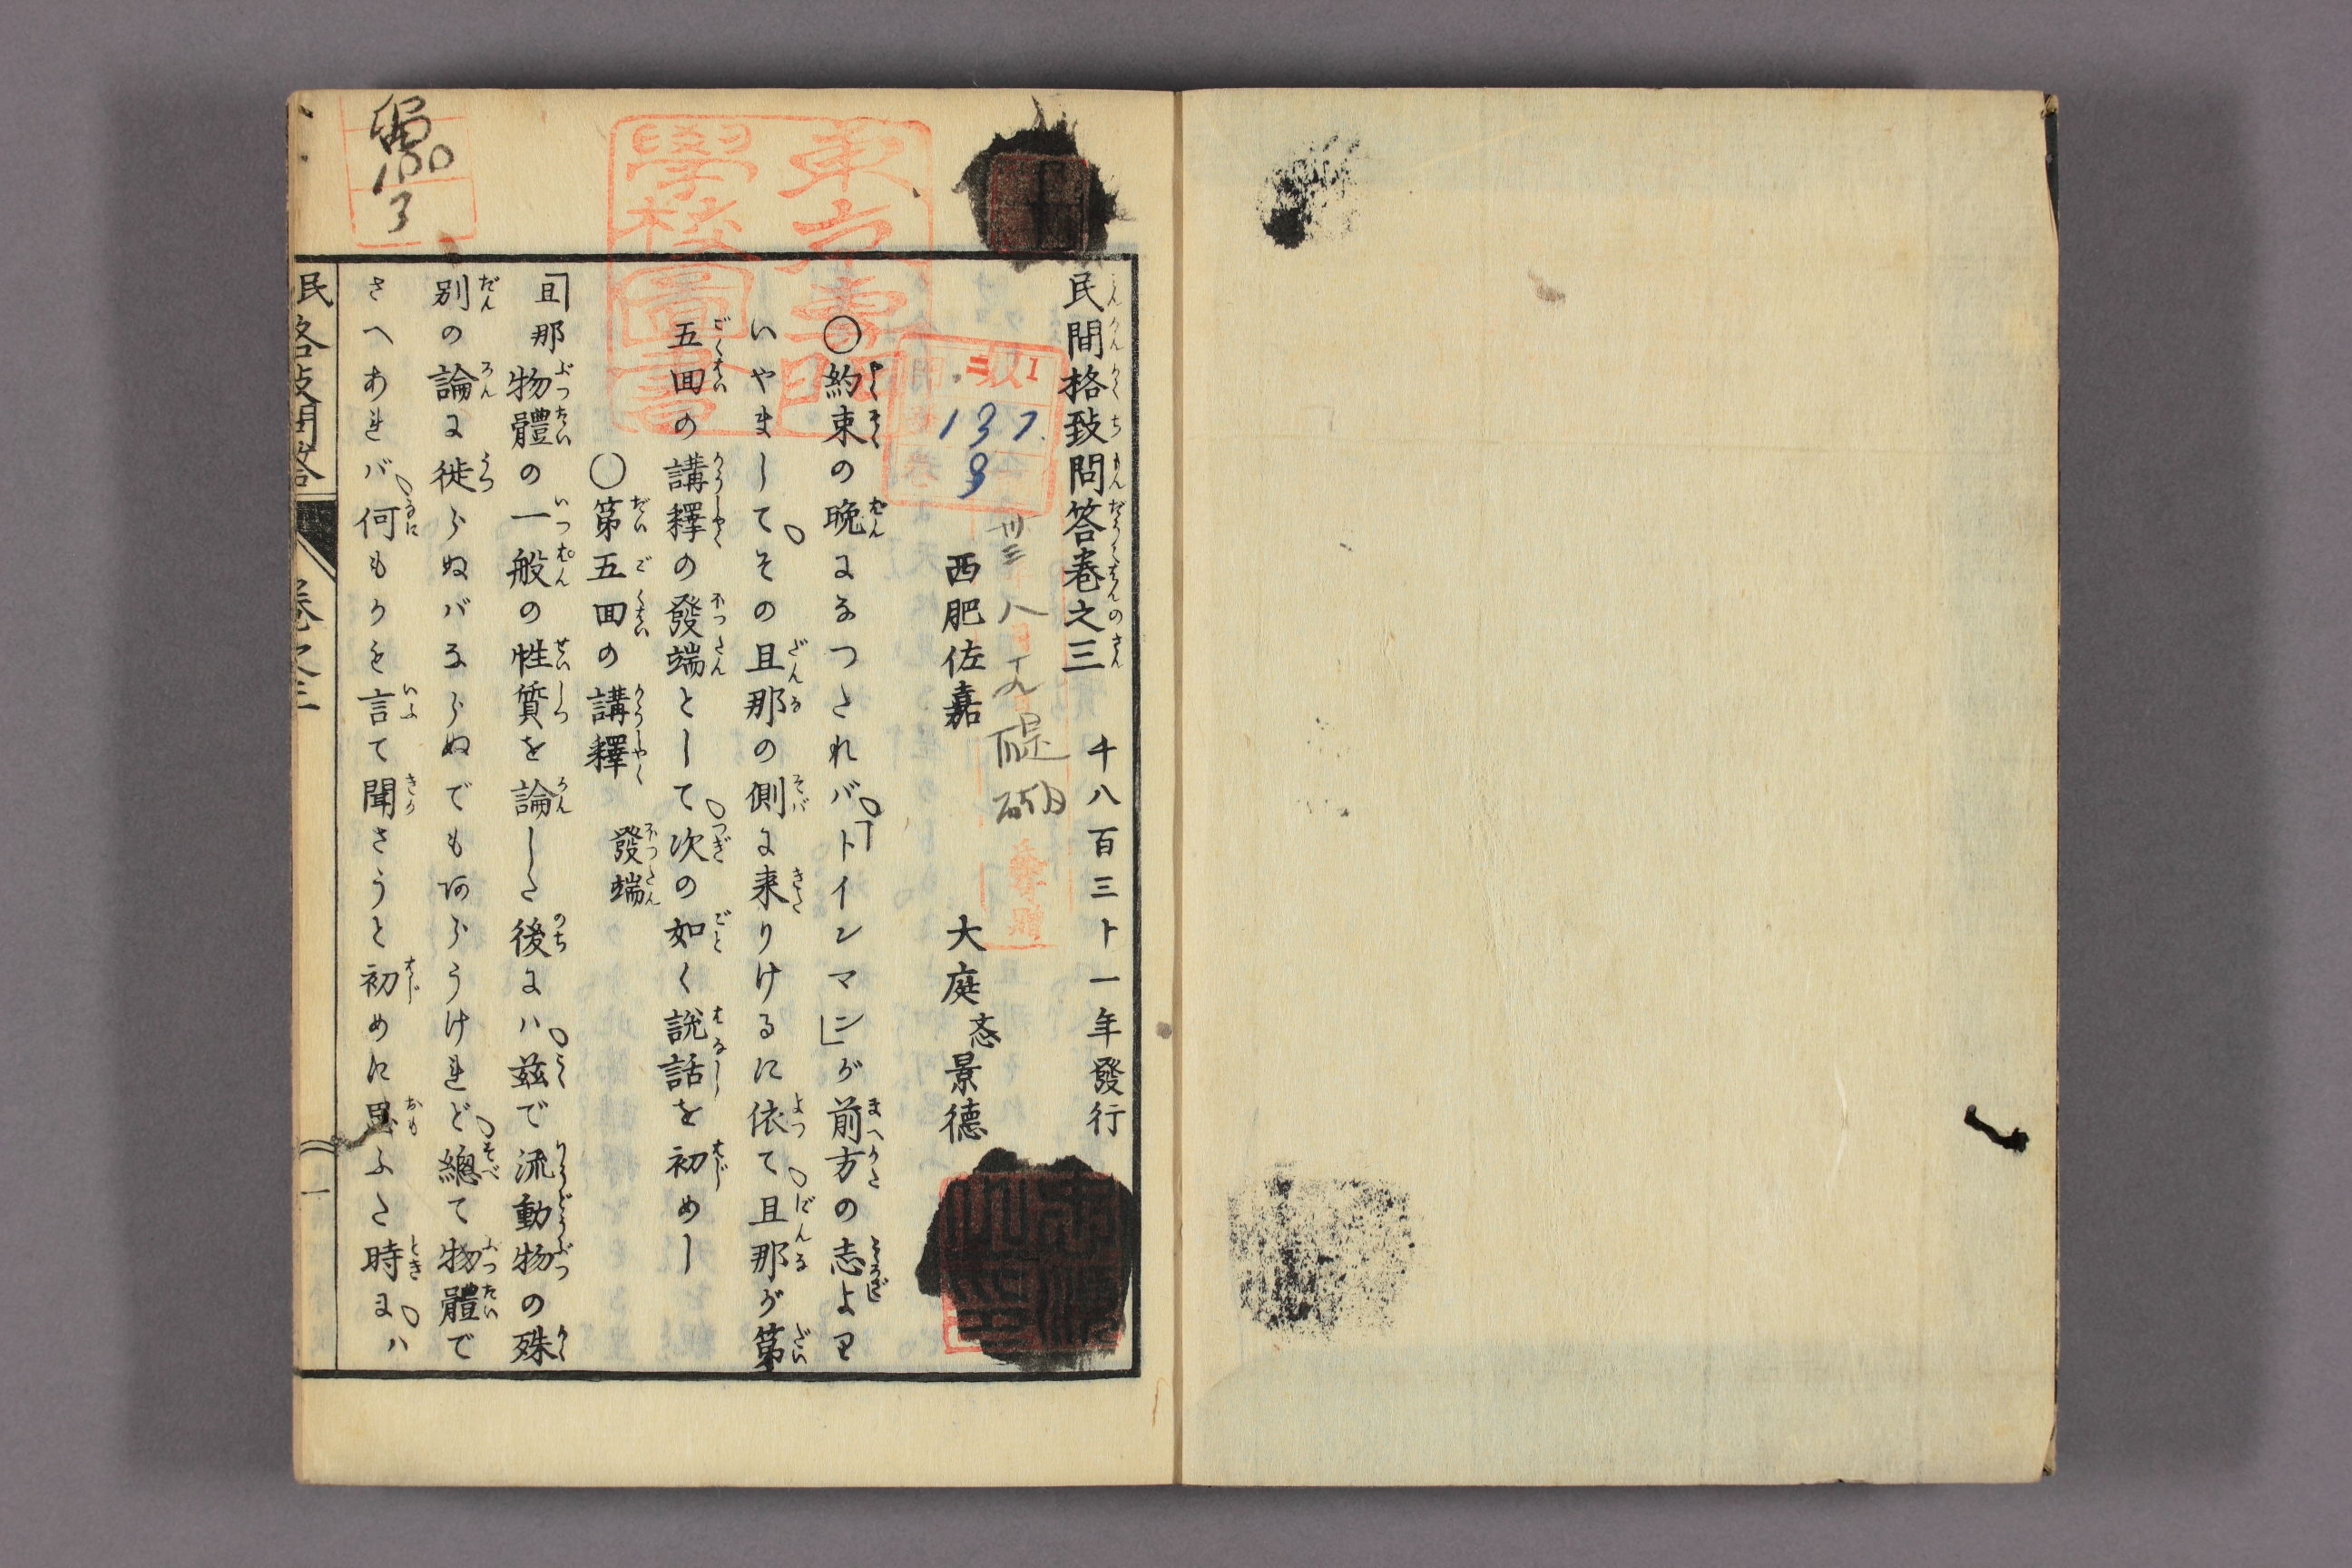 民間格致問答卷之三
千八百三十一年發行
西肥佐嘉
大庭 忞 景德
〇約束の晩になつたれバ「トインマン」が前方の志より
いやましてその旦那の側に来りけるに依て旦那が第
五回の講釋の發端として次の如く説話を初めし
〇第五回の講釋 發端
旦那 物體の一般の性質を論した後にハ茲で流動物の殊
別の論に徙らぬバならぬでも有らうけれど總て物體で
さへあれバ何もかを言て聞さうと初めに思ふた時にハ
民格致問答 卷之三 一
東京專門
學校圖書
137
9
100
3
寄贈